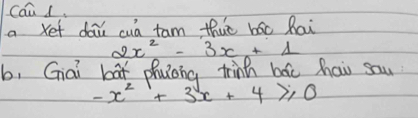 Câu 1.
a Xét dấu của tam thức bậc hai
2x² - 3x + 1
b. Giải bất phương trình bậc hai sau:
-x² + 3x + 4 ≥ 0